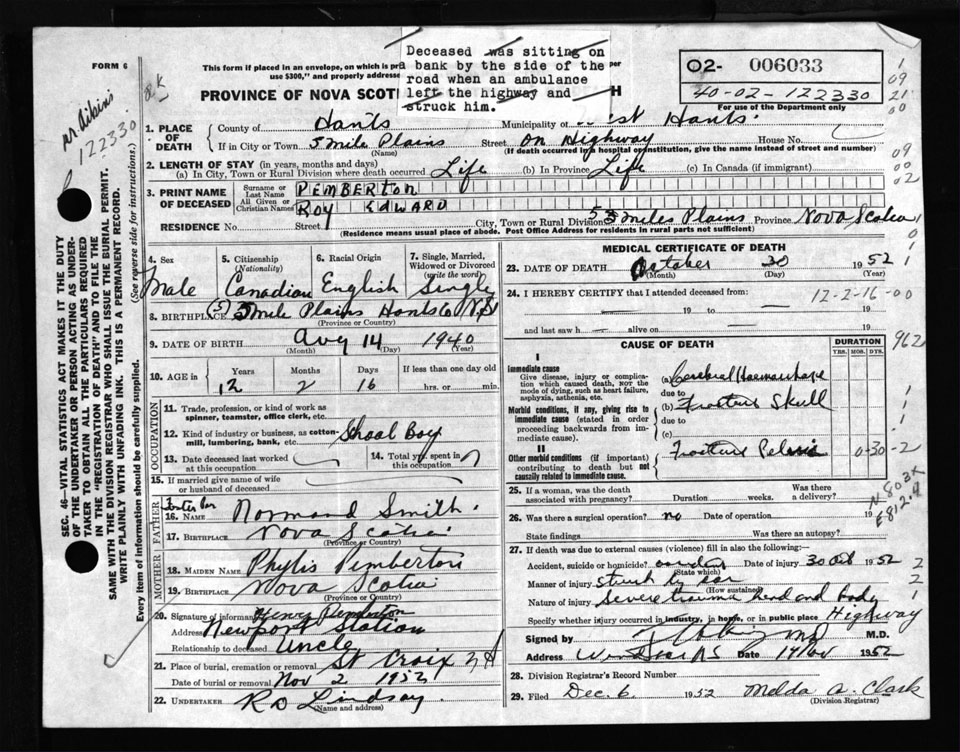 FORM 6
This form if placed in an envelope, on which is pr
per
use $300," and properly addresse
PROVINCE OF NOVA SCOTI
H
Deceased was sitting on
a bank by the side of the
road when an ambulance
left the highway and
struck him.
02- 006033
40-02-122330
For use of the Department only
Mr. Aikins
122330
1. PLACE OF DEATH
County of Hants Municipality of West Hants.
If in City or Town 5 Mile Plains Street on Highway House No.
(Name) (If death occurred in a hospital or institution, give the name instead of street and number)
2. LENGTH OF STAY (in years, months and days)
(a) In City, Town or Rural Division where death occurred Life (b) In Province Life (c) In Canada (if immigrant)
3. PRINT NAME OF DECEASED
Surname or Last Name PEMBERTON
All Given or Christian Names ROY EDWARD
RESIDENCE No. Street City, Town or Rural Division 5 Miles Plains Province Nova Scotia
(Residence means usual place of abode. Post Office Address for residents in rural parts not sufficient)
4. Sex Male
5. Citizenship (Nationality) Canadian
6. Racial Origin English
7. Single, Married, Widowed or Divorced (write the word) Single
8. BIRTHPLACE (5) 5 Mile Plains Hants Co N.S.
(Province or Country)
9. DATE OF BIRTH Aug 14 1940
(Month) (Day) (Year)
10. AGE in Years Months Days If less than one day old
12 2 16 hrs. or min.
OCCUPATION
11. Trade, profession, or kind of work as spinner, teamster, office clerk, etc.
12. Kind of industry or business, as cotton-mill, lumbering, bank, etc. School Boy
13. Date deceased last worked at this occupation
14. Total yrs. spent in this occupation
15. If married give name of wife or husband of deceased
FATHER
16. NAME Normand Smith.
17. BIRTHPLACE Nova Scotia
(Province or Country)
MOTHER
18. MAIDEN NAME Phylis Pemberton
19. BIRTHPLACE Nova Scotia
(Province or Country)
20. Signature of informant Henry Pemberton
Address Newport Station
Relationship to deceased Uncle
21. Place of burial, cremation or removal St Croix N S
Date of burial or removal Nov 2 1952
22. UNDERTAKER R D Lindsay.
(Name and address)
MEDICAL CERTIFICATE OF DEATH
23. DATE OF DEATH October 30 1952
(Month) (Day) (Year)
24. I HEREBY CERTIFY that I attended deceased from:
12-2-16-00
19 to 19
and last saw h alive on 19
CAUSE OF DEATH
DURATION
YRS. MOS. DYS.
I
Immediate cause
Give disease, injury or complication which caused death, NOT the mode of dying, such as heart failure, asphyxia, asthenia, etc.
(a) Cerebral Haemorrhage
due to
Morbid conditions, if any, giving rise to immediate cause (stated in order proceeding backwards from immediate cause).
(b) Fracture Skull
due to
(c)
II
Other morbid conditions (if important) contributing to death but not causally related to immediate cause.
Fracture Pelvis
0-30-2
962
N 803K
E812.9
25. If a woman, was the death associated with pregnancy? Duration weeks. Was there a delivery?
26. Was there a surgical operation? no Date of operation 19
State findings Was there an autopsy?
27. If death was due to external causes (violence) fill in also the following:—
Accident, suicide or homicide? Date of injury 30 Oct 1952
(State which)
Manner of injury struck by car
(How sustained)
Nature of injury Severe trauma head and body
Specify whether injury occurred in industry, in home, or in public place Highway
Signed by M.D.
Address Windsor NS Date 1 Nov 1952
28. Division Registrar's Record Number
29. Filed Dec. 6 1952 Melda A. Clark
(Division Registrar)
SEC. 46—VITAL STATISTICS ACT MAKES IT THE DUTY
OF THE UNDERTAKER OR PERSON ACTING AS UNDERTAKER TO OBTAIN ALL THE PARTICULARS REQUIRED
IN THE "REGISTRATION OF DEATH" AND TO FILE THE
SAME WITH THE DIVISION REGISTRAR WHO SHALL ISSUE THE BURIAL PERMIT.
WRITE PLAINLY WITH UNFADING INK. THIS IS A PERMANENT RECORD.
Every item of information should be carefully supplied. (See reverse side for instructions.)